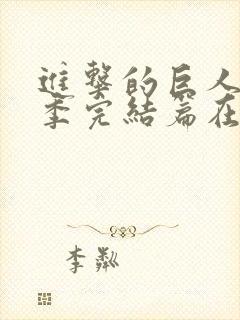 進擊的巨人
季完結篇在
李粼